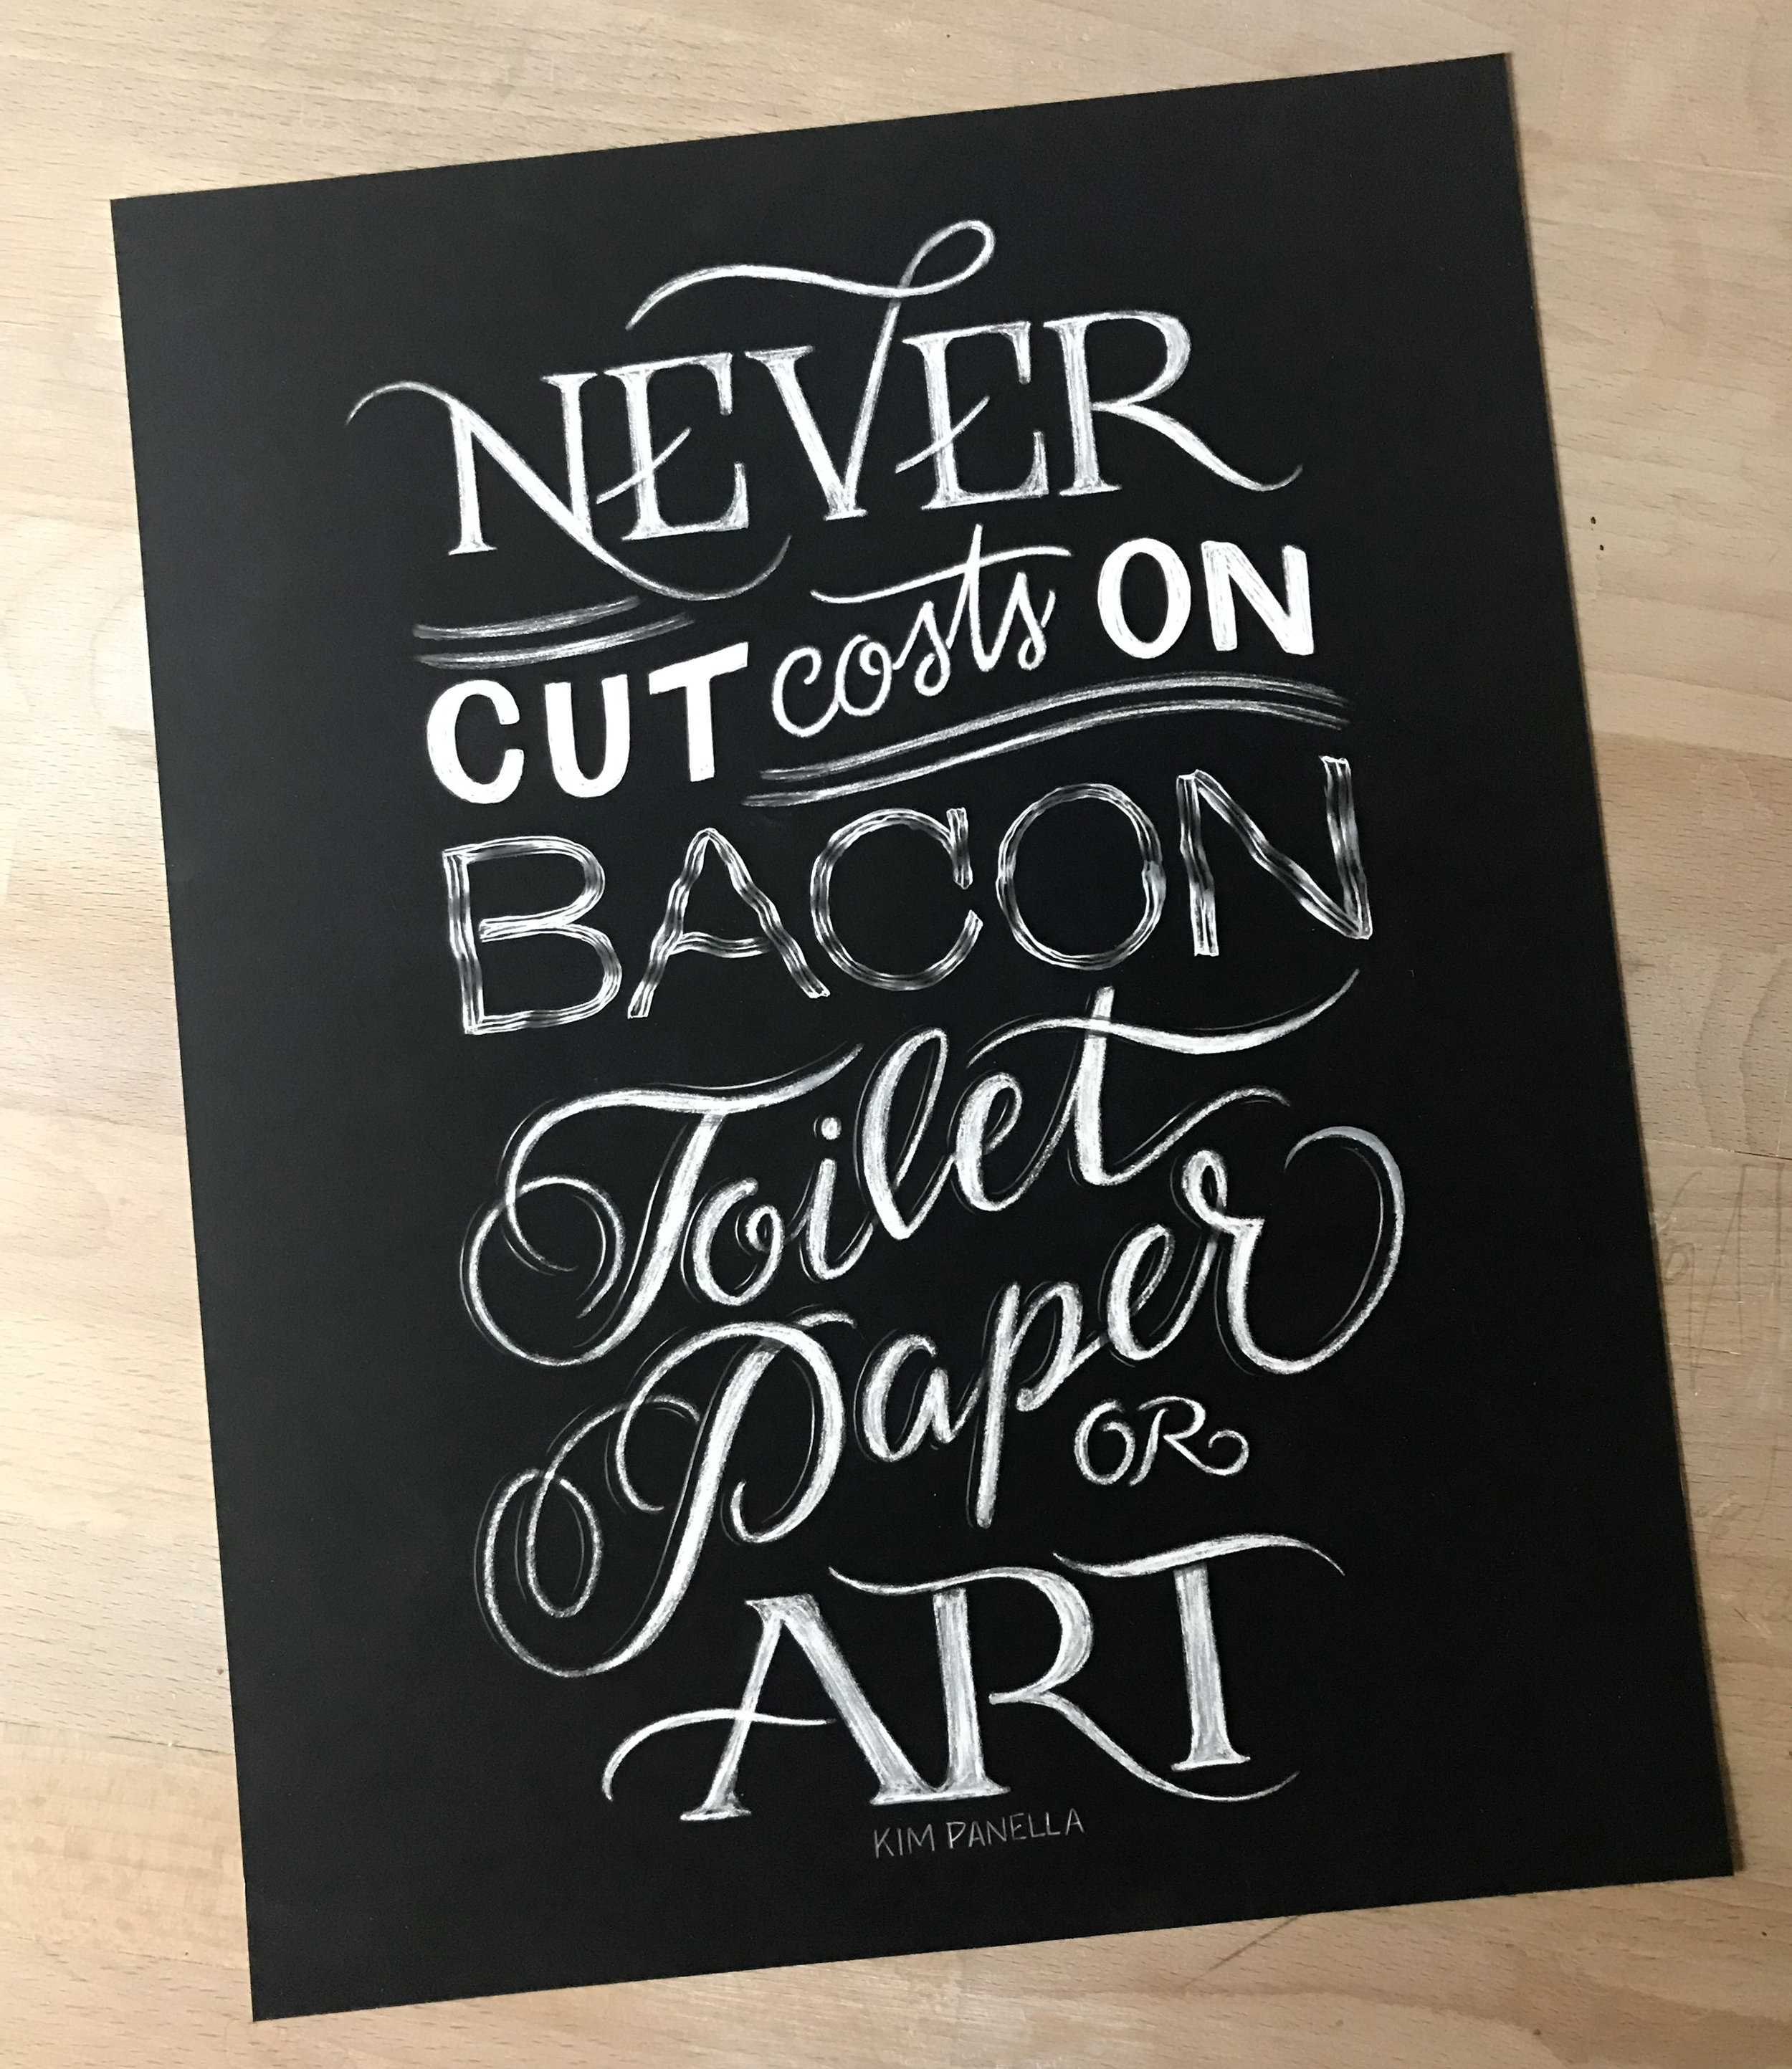 NEVER
CUT costs ON
BACON
Toilet
Paper
OR
ART
KIM PANELLA